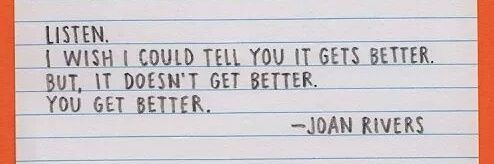 LISTEN.
I WISH I COULD TELL YOU IT GETS BETTER.
BUT, IT DOESN'T GET BETTER.
YOU GET BETTER.
—JOAN RIVERS